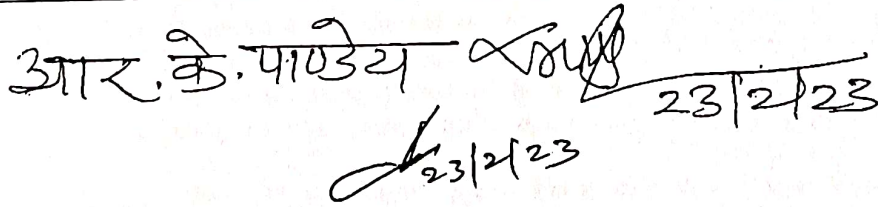 आर. के. पाण्डेय 23|2|23
23|2|23